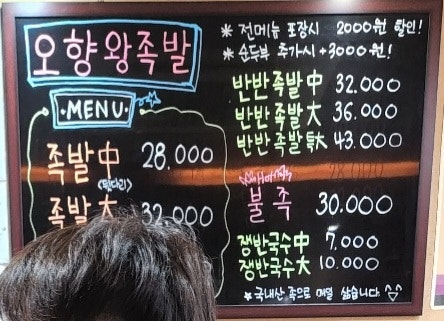 오향왕족발
MENU
족발 中 28.000
<뒷다리>
족발 大 32.000
* 전메뉴 포장시 2000원 할인!
* 순두부 추가시 +3000원!
반반족발 中 32.000
반반족발 大 36.000
반반족발 특大 43.000
Hot
불족 30.000
쟁반국수 中 7.000
쟁반국수 大 10.000
* 국내산 족으로 매일 삶습니다.